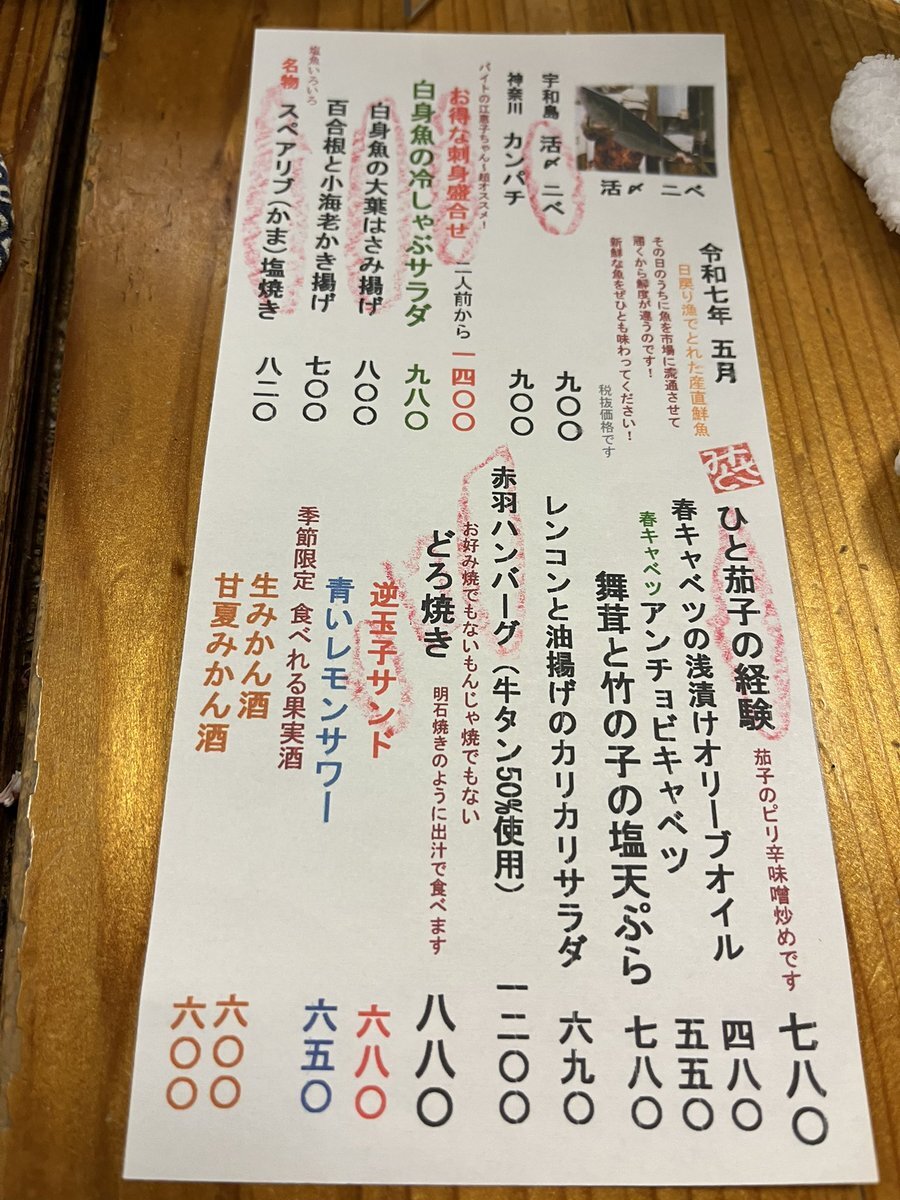 活〆 ニベ
令和七年 五月
日戻り漁でとれた産直鮮魚
その日のうちに魚を市場に流通させて
届くから鮮度が違うのです！
新鮮な魚をぜひとも味わってください！
税抜価格です
宇和島 活〆 ニベ 九〇〇
神奈川 カンパチ 九〇〇
バイトの江恵子ちゃん〜超オススメ！
お得な刺身盛合せ 二人前から 一四〇〇
白身魚の冷しゃぶサラダ 九八〇
白身魚の大葉はさみ揚げ 八〇〇
百合根と小海老かき揚げ 七〇〇
塩魚いろいろ
名物 スペアリブ（かま）塩焼き 八二〇
ひと茄子の経験 七八〇
茄子のピリ辛味噌炒めです
春キャベツの浅漬けオリーブオイル 四八〇
春キャベツ アンチョビキャベツ 五五〇
舞茸と竹の子の塩天ぷら 七八〇
レンコンと油揚げのカリカリサラダ 六九〇
赤羽ハンバーグ（牛タン50%使用） 一二〇〇
お好み焼でもないもんじゃ焼でもない
どろ焼き 八八〇
明石焼きのように出汁で食べます
逆玉子サンド 六八〇
青いレモンサワー 六五〇
季節限定 食べれる果実酒
生みかん酒 六〇〇
甘夏みかん酒 六〇〇